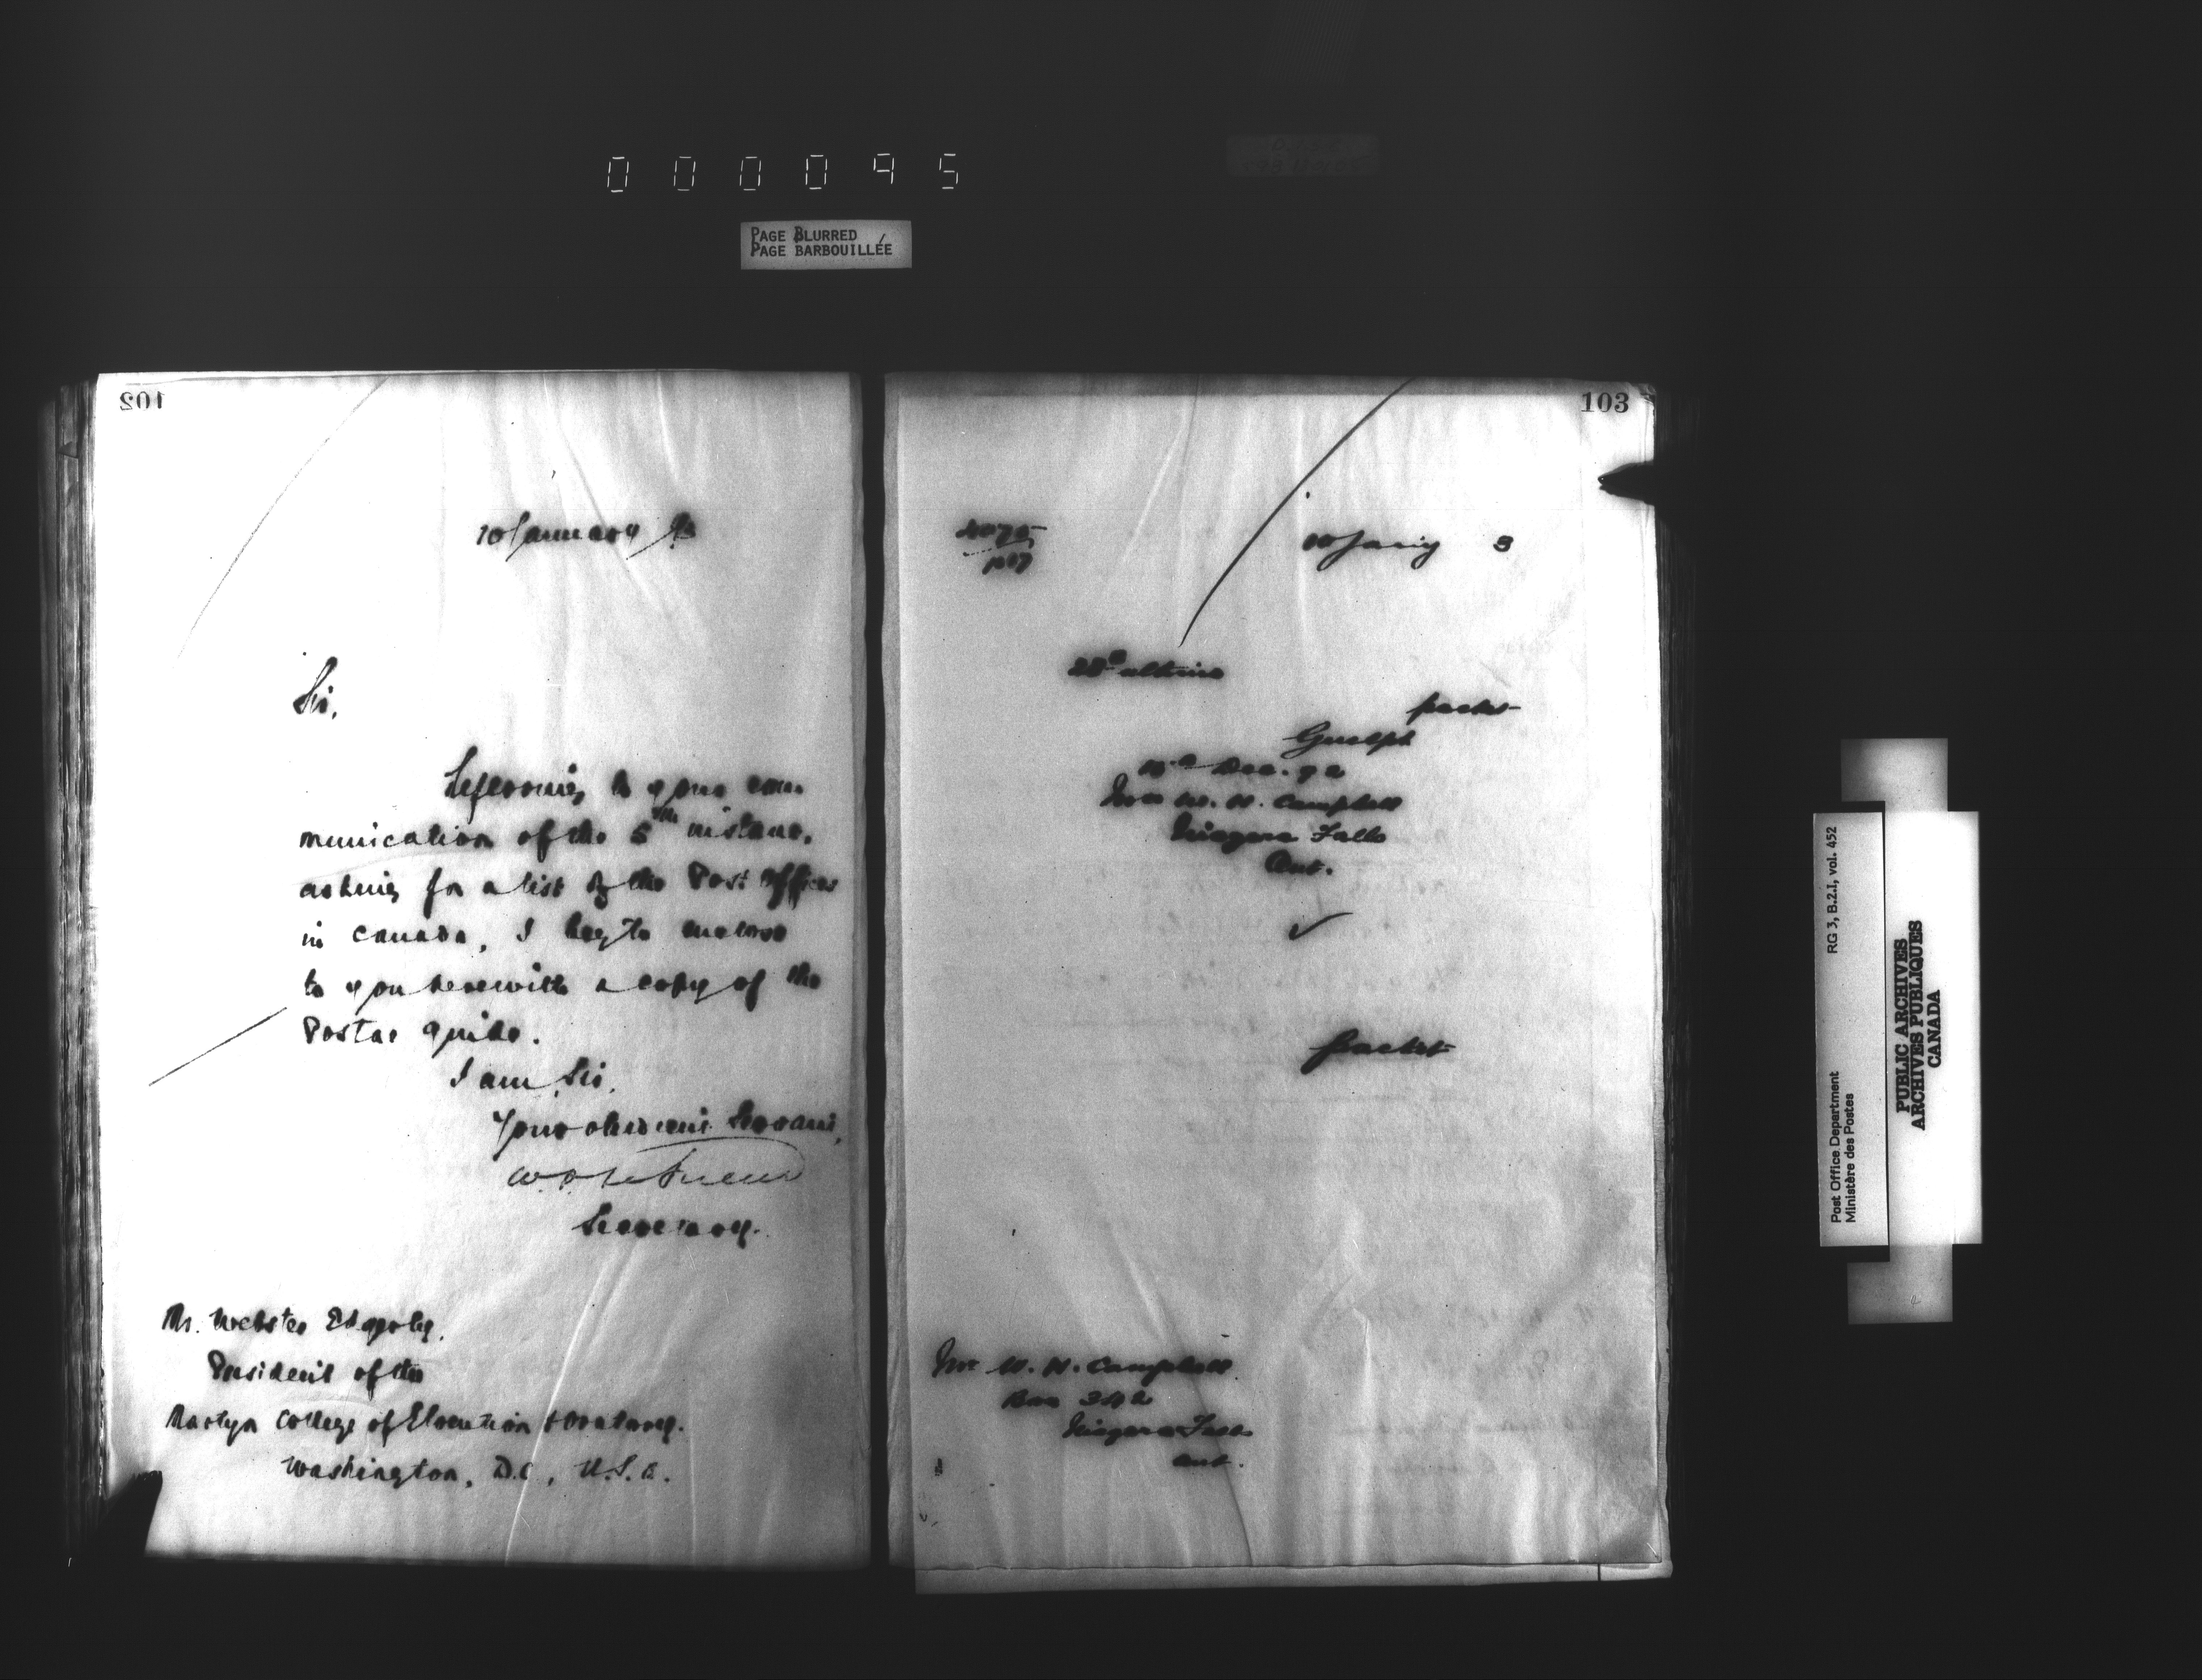 000095
PAGE BLURRED
PAGE BARBOUILLÉE
102
10 January
Sir,
Referring to your com-
munication of the 5th instant,
asking for a list of the Post Offices
in Canada, I beg to enclose
to you herewith a copy of the
Postal Guide.
I am, Sir,
Your obedient Servant,
Secretary.
Mr. Webster Edgerly,
President of the
Martyn College of Elocution & Oratory.
Washington, D.C., U.S.A.
103
10 Jany 3
28th ultimo
packet
Guelph
Dec. 92
W. H. Campbell
Niagara Falls
Ont.
packet
Mr W. H. Campbell
Box 342
Niagara Falls
Ont.
Post Office Department RG 3, B.2.I, vol. 452
Ministère des Postes
PUBLIC ARCHIVES
ARCHIVES PUBLIQUES
CANADA